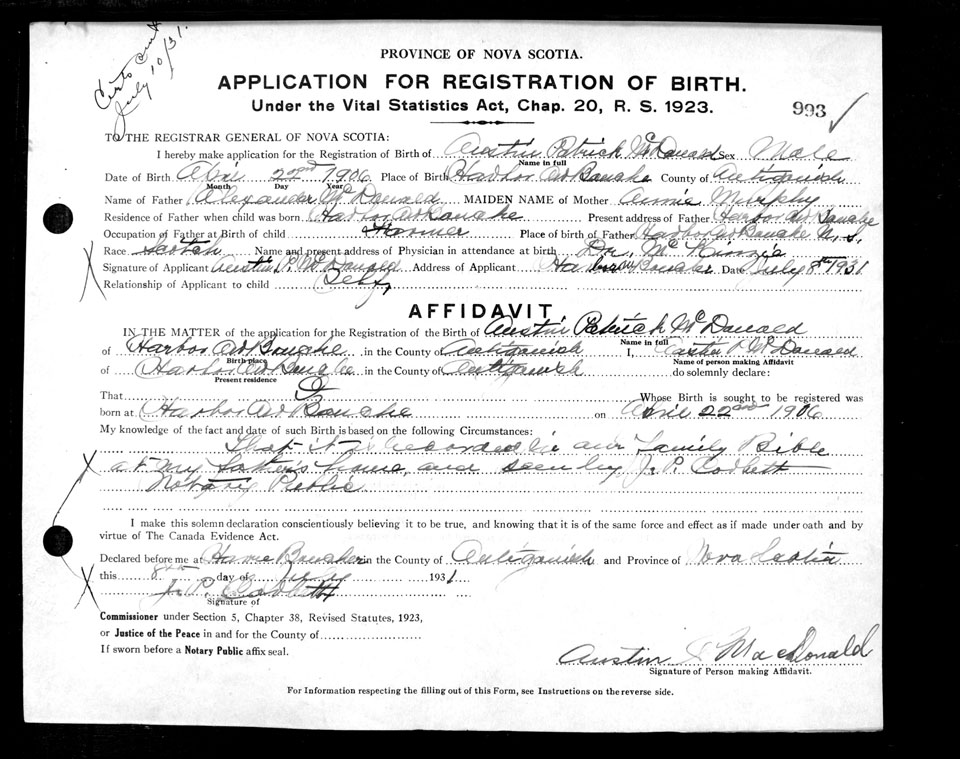 Certs sent
July 10/31.
PROVINCE OF NOVA SCOTIA.
APPLICATION FOR REGISTRATION OF BIRTH.
Under the Vital Statistics Act, Chap. 20, R. S. 1923.
993
TO THE REGISTRAR GENERAL OF NOVA SCOTIA:
I hereby make application for the Registration of Birth of Austin Patrick McDonald Sex Male
Name in full
Date of Birth April 22nd 1906 Place of Birth Harbor Au Bouche County of Antigonish
Month Day Year
Name of Father Alexander McDonald MAIDEN NAME of Mother Annie Murphy
Residence of Father when child was born Harbor Au Bouche Present address of Father Harbor Au Bouche
Occupation of Father at Birth of child Farmer Place of birth of Father Harbor Au Bouche N. S.
Race Scotch Name and present address of Physician in attendance at birth Dr. McKinnie
Signature of Applicant Austin P. McDonald Address of Applicant Harbor au Bouche Date July 8th 1931
Relationship of Applicant to child Self
AFFIDAVIT
IN THE MATTER of the application for the Registration of the Birth of Austin Patrick McDonald
Name in full
of Harbor Au Bouche in the County of Antigonish I, Austin P McDonald
Birth place Name of person making Affidavit
of Harbor Au Bouche in the County of Antigonish do solemnly declare:
Present residence
That I Whose Birth is sought to be registered was
born at Harbor Au Bouche on April 22nd 1906
My knowledge of the fact and date of such Birth is based on the following Circumstances:
That it is recorded in our Family Bible
at my Father's home, and seen by J. P. Corbett
Notary Public
I make this solemn declaration conscientiously believing it to be true, and knowing that it is of the same force and effect as if made under oath and by
virtue of The Canada Evidence Act.
Declared before me at Havre Boucher in the County of Antigonish and Province of Nova Scotia
this 8th day of July 1931
J. P. Corbett
Signature of
Commissioner under Section 5, Chapter 38, Revised Statutes, 1923,
or Justice of the Peace in and for the County of
If sworn before a Notary Public affix seal.
Austin P MacDonald
Signature of Person making Affidavit.
For Information respecting the filling out of this Form, see Instructions on the reverse side.